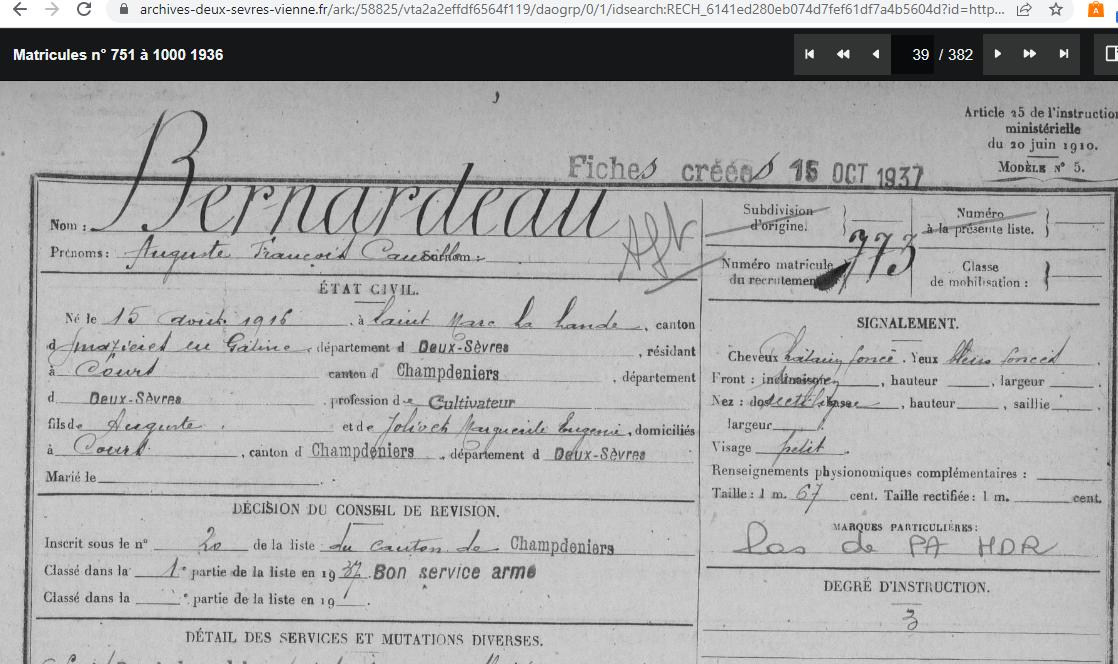 archives-deux-sevres-vienne.fr/ark:/58825/vta2a2effdf6564f119/daogrp/0/1/idsearch:RECH_6141ed280eb074d7fef61df7a4b5604d?id=http...
Matricules n° 751 à 1000 1936
39 / 382
Article 25 de l'instruction
ministérielle
du 20 juin 1910.
MODÈLE N° 5.
Fiches créées 15 OCT 1937
Nom : Bernardeau
Prénoms : Auguste François
ÉTAT CIVIL.
Né le 15 août 1916, à Saint Marc la Lande, canton
d mazières en Gâtine, département d Deux-Sèvres, résidant
à Cours canton d Champdeniers, département
d Deux-Sèvres, profession de Cultivateur
fils de Auguste et de Jolivet Marguerite Eugenie, domiciliés
à Cours, canton d Champdeniers, département d Deux-Sèvres
Marié le
DÉCISION DU CONSEIL DE REVISION.
Inscrit sous le n° 20 de la liste du canton de Champdeniers
Classé dans la 1e partie de la liste en 1937 Bon service armé
Classé dans la e partie de la liste en 19
DÉTAIL DES SERVICES ET MUTATIONS DIVERSES.
Subdivision
d'origine.
Numéro
à la présente liste.
Numéro matricule
du recrutement 773
Classe
de mobilisation :
SIGNALEMENT.
Cheveux châtain foncé. Yeux bleus foncés
Front : , hauteur , largeur
Nez : dos , hauteur , saillie
largeur
Visage petit
Renseignements physionomiques complémentaires :
Taille : 1 m. 67 cent. Taille rectifiée : 1 m. cent.
MARQUES PARTICULIÈRES :
Pas de PA HDR
DEGRÉ D'INSTRUCTION.
3